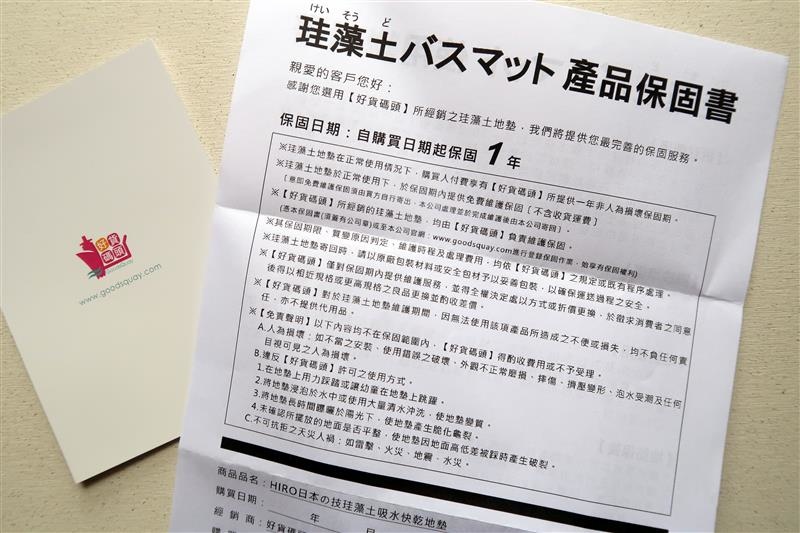 好貨
碼頭
goodsquay
www.goodsquay.com
けい そう ど
珪藻土バスマット 產品保固書
親愛的客戶您好：
感謝您選用【好貨碼頭】所經銷之珪藻土地墊，我們將提供您最完善的保固服務。
保固日期：自購買日期起保固 1 年
※珪藻土地墊在正常使用情況下，購買人付費享有【好貨碼頭】所提供一年非人為損壞保固期。
※珪藻土地墊於正常使用下，於保固期內提供免費維護保固〔不含收貨運費〕
〔意即免費維護保固須由買方自行寄出，本公司處理並於完成維護後由本公司寄回〕。
※【好貨碼頭】所經銷的珪藻土地墊，均由【好貨碼頭】負責維護保固。
(憑本保固書(須蓋有公司章)或至本公司官網：www.goodsquay.com進行登錄保固作業，始享有保固權利)
※其保固期限、質變原因判定、維護時程及處理費用，均依【好貨碼頭】之規定或既有程序處理。
※珪藻土地墊寄回時，請以原廠包裝材料或安全包材予以妥善包裝，以確保運送過程之安全。
※【好貨碼頭】僅對保固期內提供維護服務，並得全權決定處以方式或折價更換，於徵求消費者之同意
後得以相近規格或更高規格之良品更換並酌收差價。
※【好貨碼頭】對於珪藻土地墊維護期間，因無法使用該項產品所造成之不便或損失，均不負任何責
任，亦不提供代用品。
※【免責聲明】以下內容均不在保固範圍內，【好貨碼頭】得酌收費用或不予受理。
A.人為損壞：如不當之安裝、使用錯誤之破壞、外觀不正常磨損、摔傷、擠壓變形、泡水受潮及任何
目視可見之人為損壞。
B.違反【好貨碼頭】許可之使用方式。
1.在地墊上用力踩踏或讓幼童在地墊上跳躍。
2.將地墊浸泡於水中或使用大量清水沖洗，使地墊變質。
3.將地墊長時間曝曬於陽光下，使地墊產生脆化龜裂。
4.未確認所擺放的地面是否平整，使地墊因地面高低差被踩時產生破裂。
C.不可抗拒之天災人禍：如雷擊、火災、地震、水災。
商品品名：HIRO日本の技珪藻土吸水快乾地墊
購買日期： 年
經銷商：好貨碼